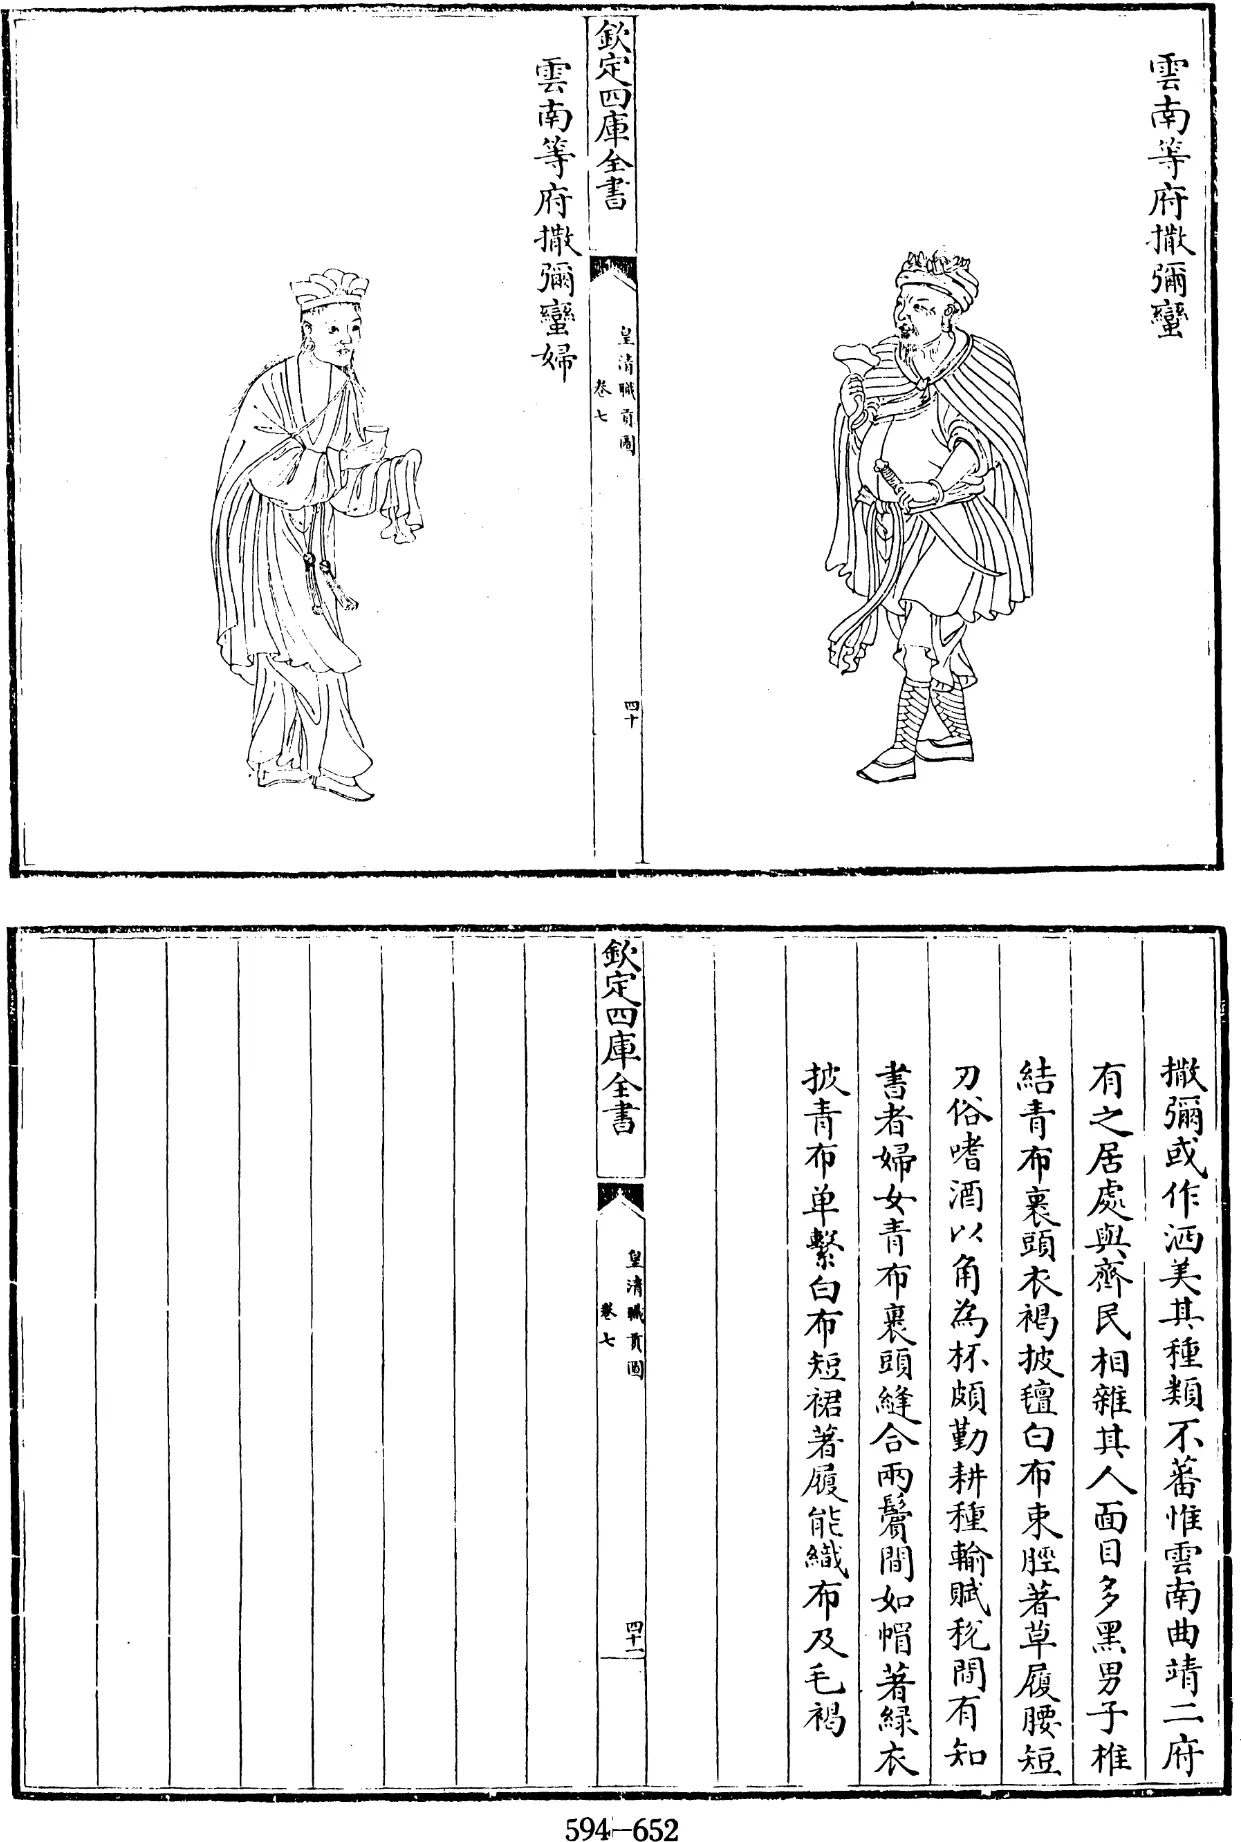 雲南等府撒彌蠻
欽定四庫全書
皇清職貢圖
卷七
四十
雲南等府撒彌蠻婦
撒彌或作洒美其種類不蕃惟雲南曲靖二府
有之居處與齊民相雜其人面目多黑男子椎
結青布裹頭衣褐披氊白布束脛著草履腰短
刀俗嗜酒以角為杯頗勤耕種輸賦稅間有知
書者婦女青布裹頭縫合兩鬢間如帽著緑衣
披青布单繫白布短裙著履能織布及毛褐
欽定四庫全書
皇清職貢圖
卷七
四十一
594-652